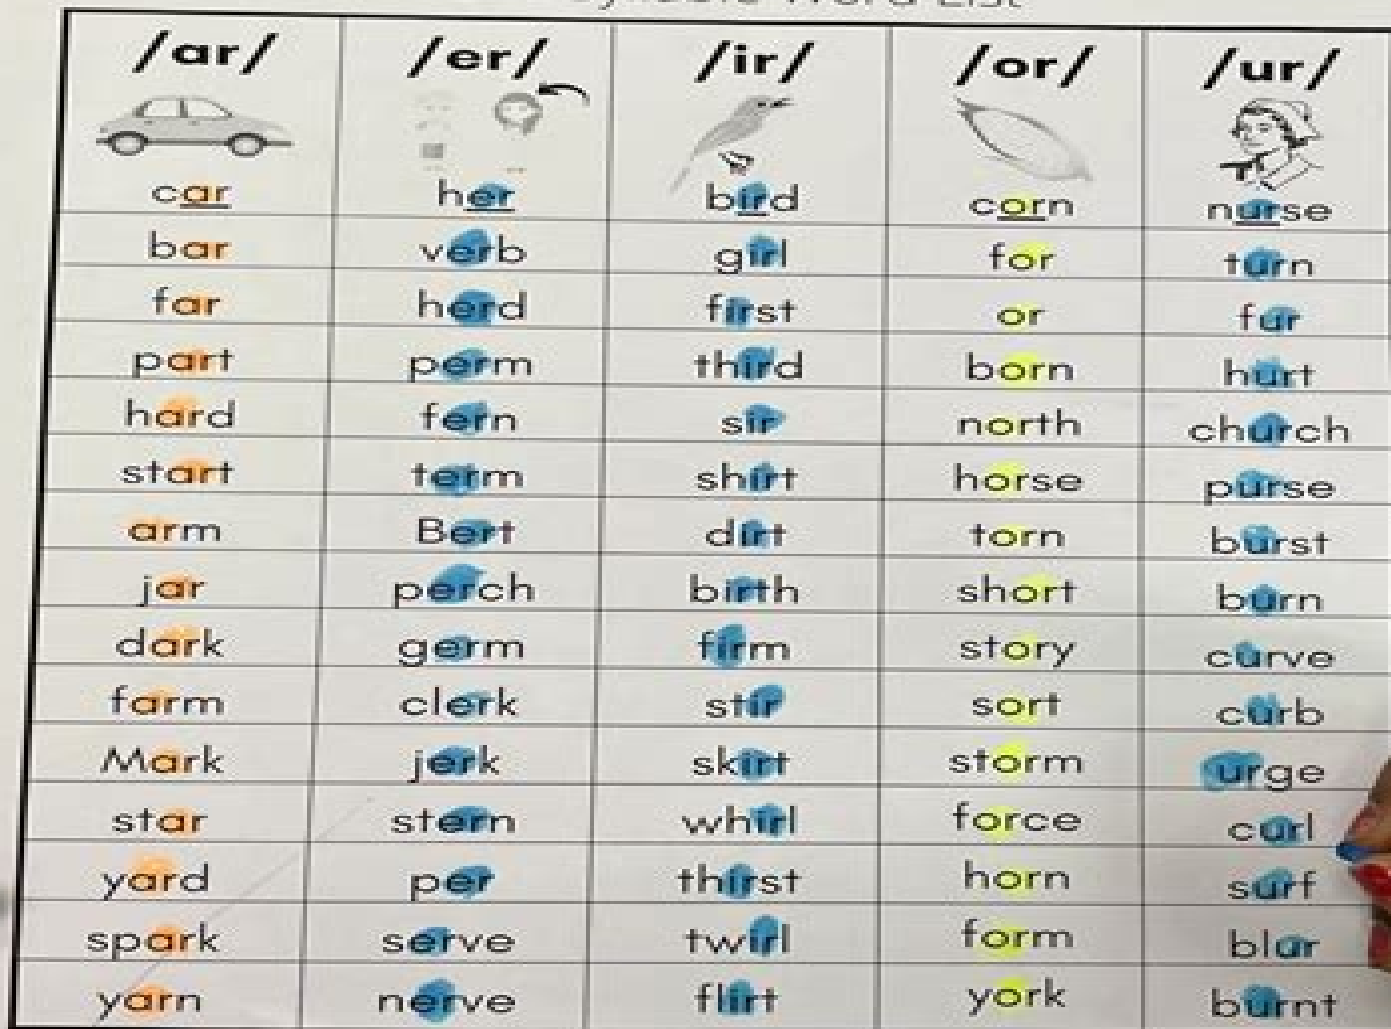 Word List
/ar/ /er/ /ir/ /or/ /ur/
car her bird corn nurse
bar verb girl for turn
far herd first or fur
part perm third born hurt
hard fern sir north church
start term shirt horse purse
arm Bert dirt torn burst
jar perch birth short burn
dark germ firm story curve
farm clerk stir sort curb
Mark jerk skirt storm urge
star stern whirl force curl
yard per thirst horn surf
spark serve twirl form blur
yarn nerve flirt york burnt